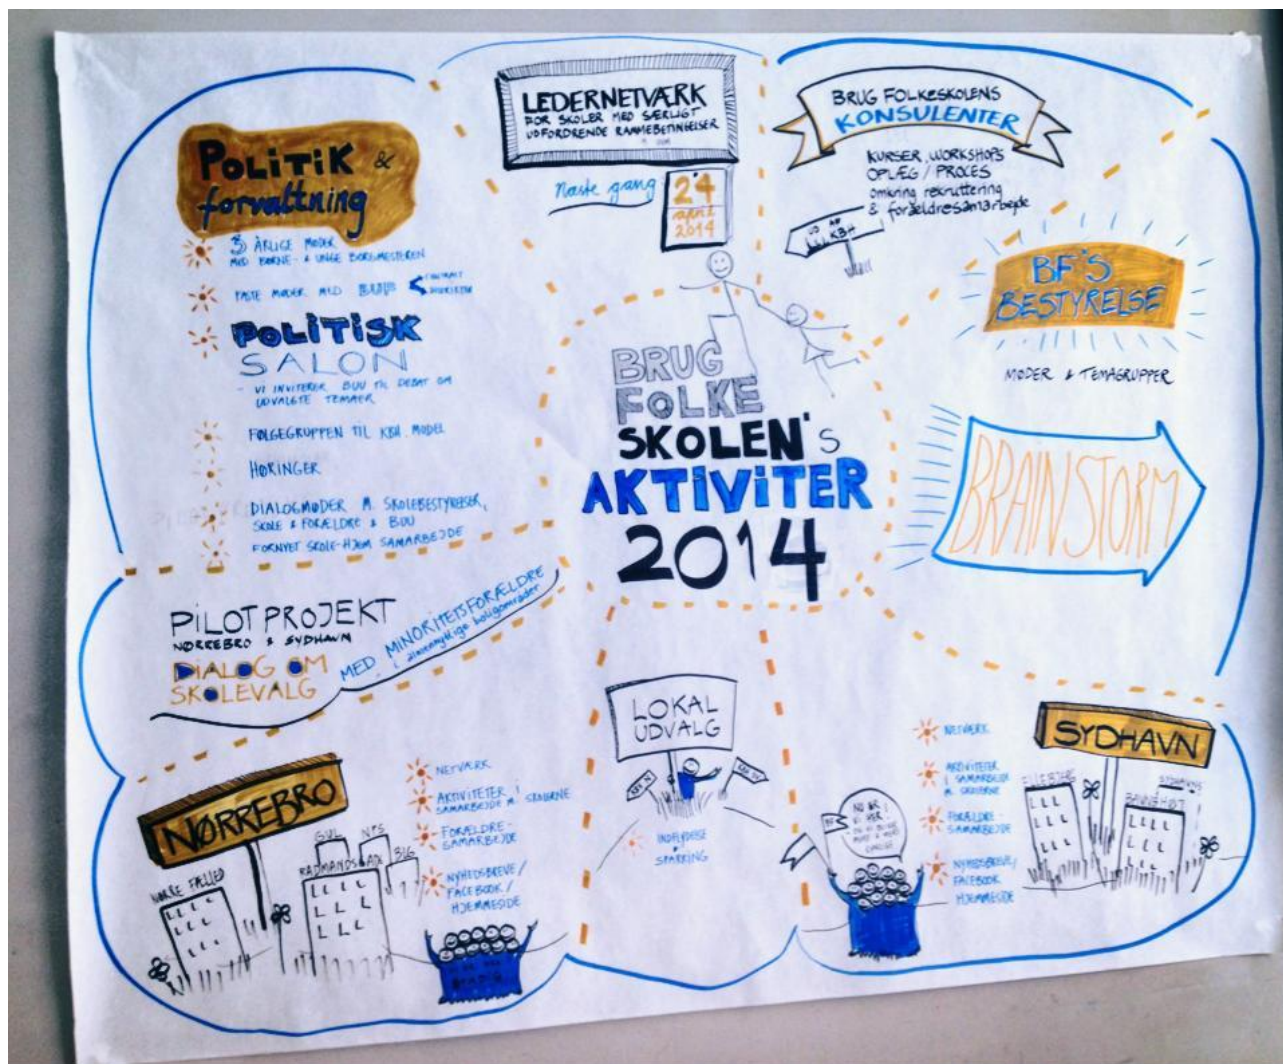 POLITIK &
forvaltning
3 ÅRLIGE MØDER
MED BØRNE- & UNGE BORGMESTEREN
FASTE MØDER MED
POLITISK
SALON
- VI INVITERER BUU TIL DEBAT OM
UDVALGTE TEMAER
FØLGEGRUPPEN TIL KBH. MODEL
HØRINGER
DIALOGMØDER M. SKOLEBESTYRELSER,
SKOLE & FORÆLDRE & BUU
FORNYET SKOLE-HJEM SAMARBEJDE
LEDERNETVÆRK
FOR SKOLER MED SÆRLIGT
UDFORDRENDE RAMMEBETINGELSER
Næste gang
24
april
2014
BRUG FOLKESKOLENS
KONSULENTER
KURSER, WORKSHOPS
OPLÆG / PROCES
omkring rekruttering
& forældresamarbejde
UD AF
KBH
BF'S
BESTYRELSE
MØDER & TEMAGRUPPER
BRAINSTORM
BRUG
FOLKE
SKOLEN'S
AKTIVITER
2014
PILOTPROJEKT
NØRREBRO & SYDHAVN
DIALOG OM
SKOLEVALG
MED MINORITETSFORÆLDRE
i almennyttige boligområder
NØRREBRO
NØRRE FÆLLED
GUL
NPS
RÅDMANDSGADE
BIG
NETVÆRK
AKTIVITETER I
SAMARBEJDE M. SKOLERNE
FORÆLDRE-
SAMARBEJDE
NYHEDSBREVE/
FACEBOOK/
HJEMMESIDE
LOKAL
UDVALG
INDFLYDELSE
SPARRING
NU ER
VI HER!
NETVÆRK
AKTIVITETER
I SAMARBEJDE
M. SKOLERNE
FORÆLDRE-
SAMARBEJDE
NYHEDSBREVE/
FACEBOOK
HJEMMESIDE
SYDHAVN
ELLEBJERG
BAVNEHØJ
SYDHAVNS